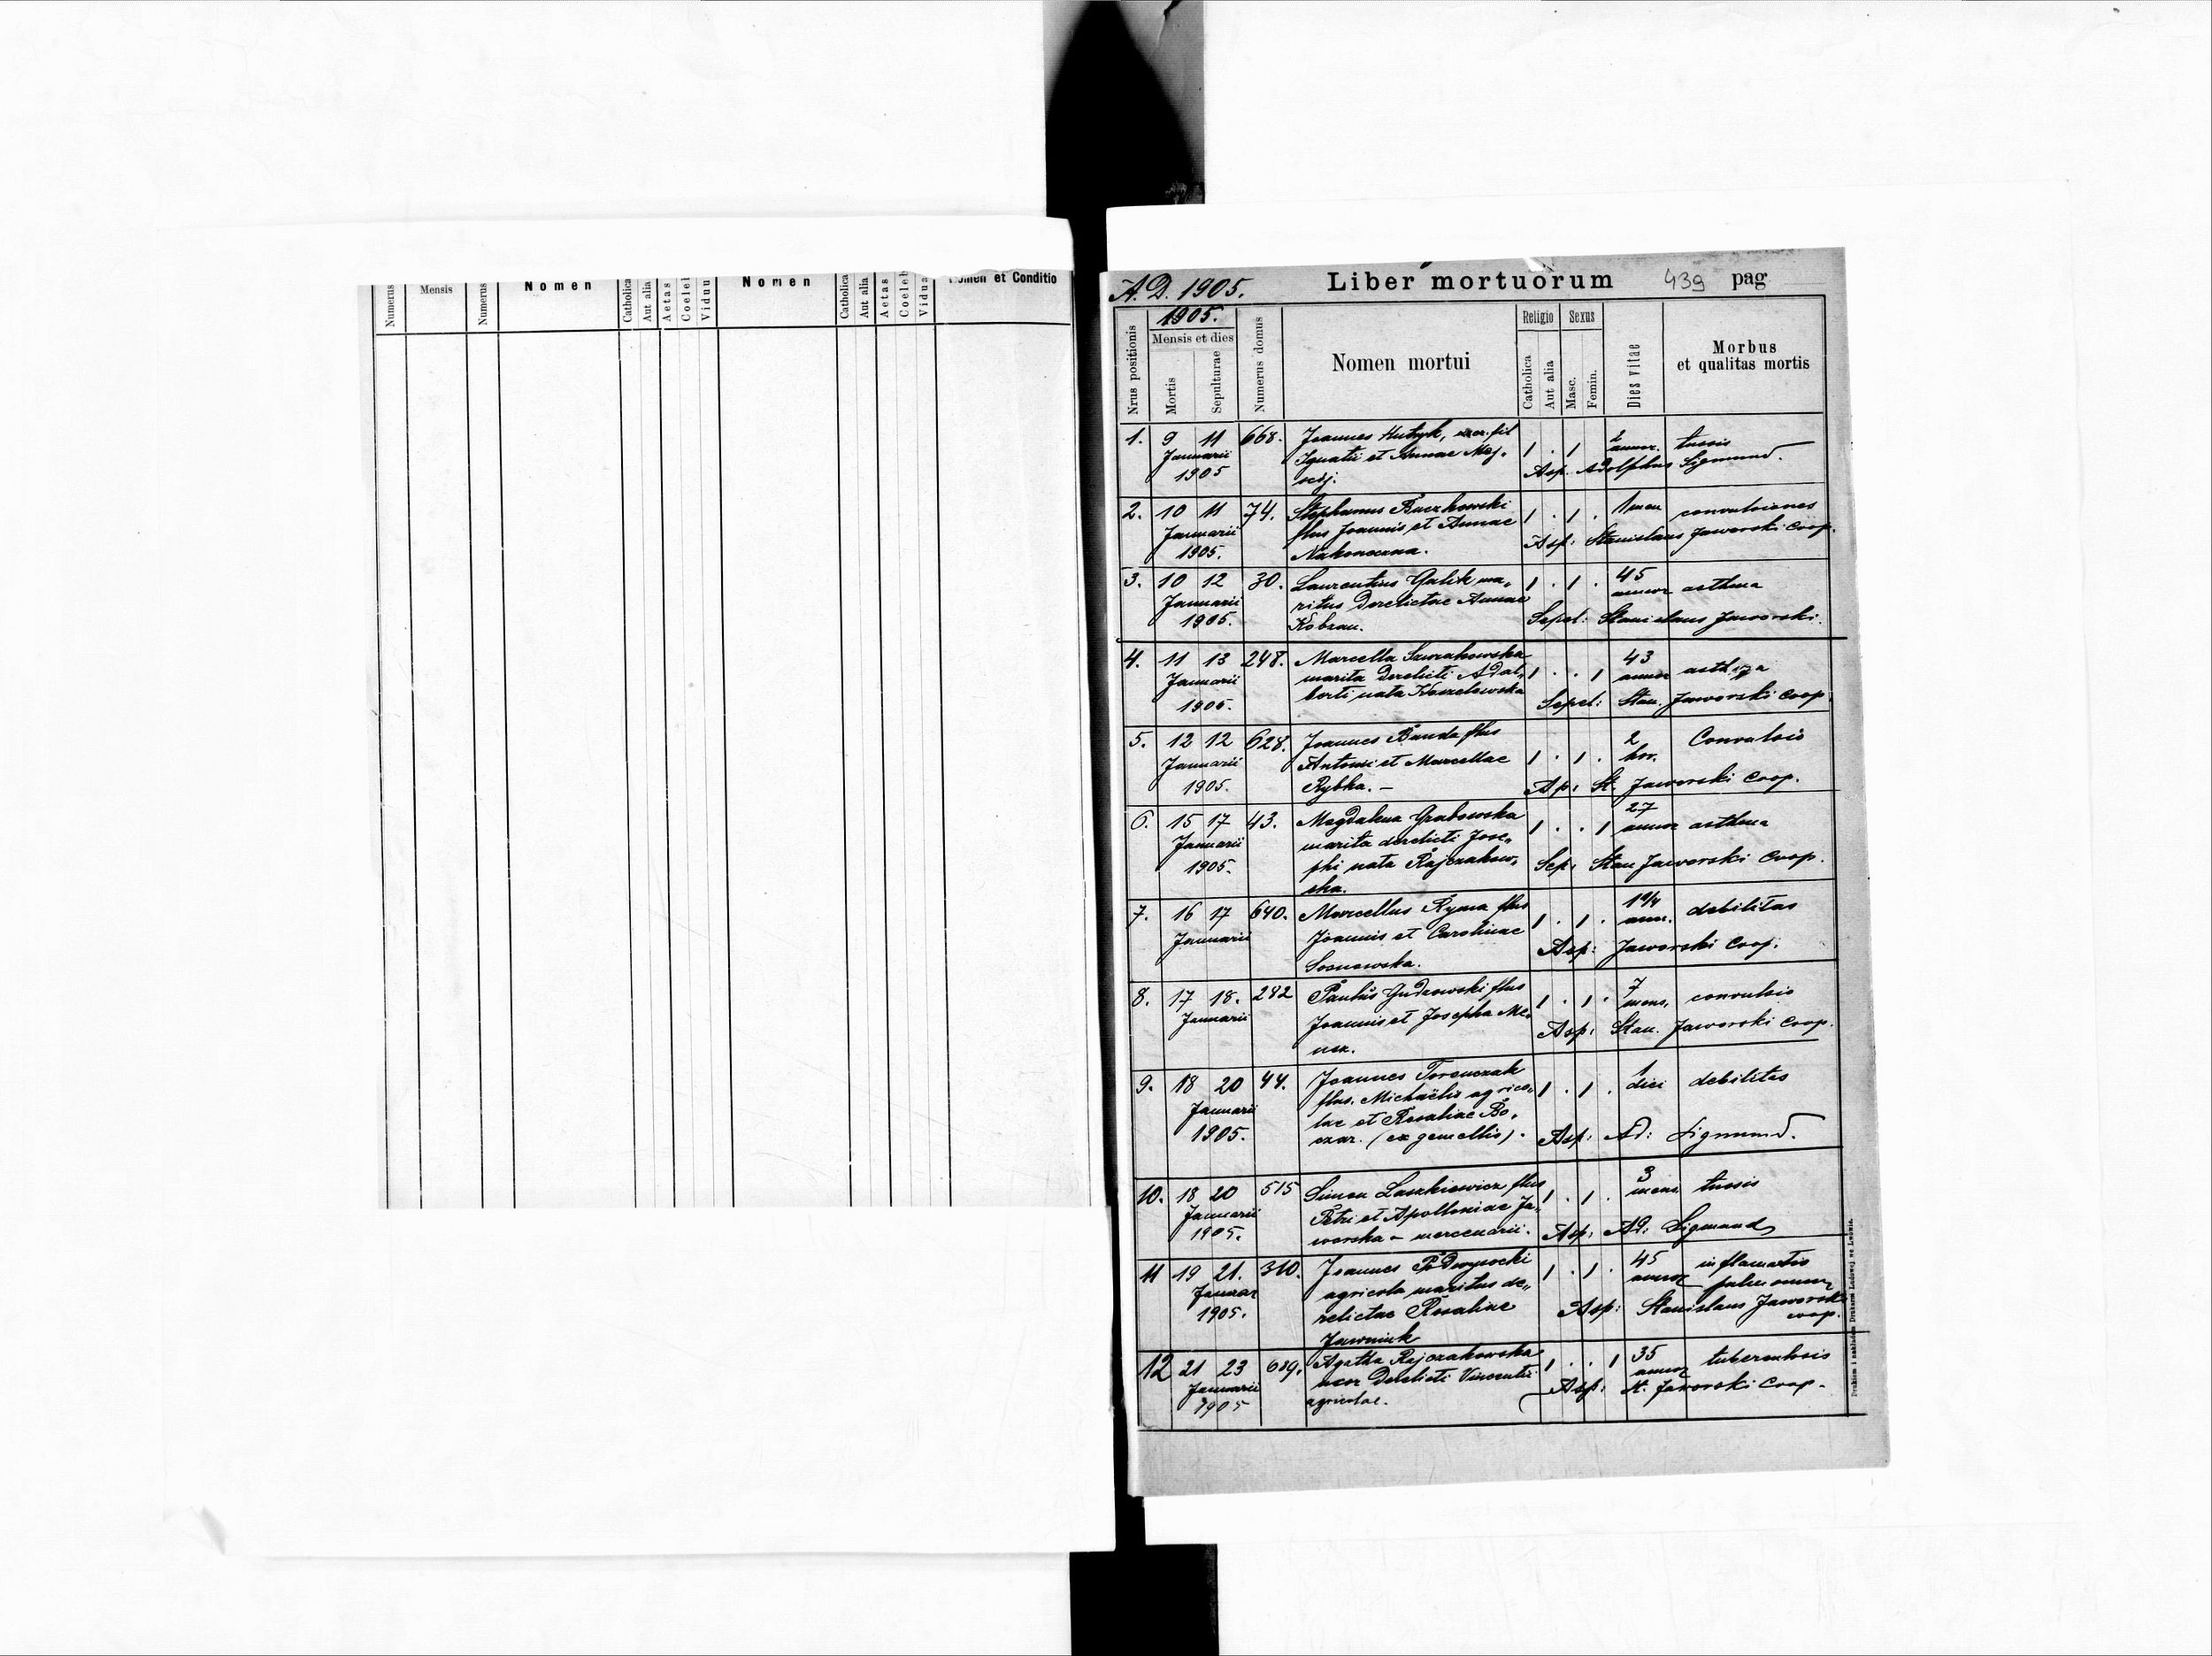 Numerus
Mensis
Numerus
Nomen
Catholica
Aut alia
Aetas
Viduu
Nomen
Catholica
Aut alia
Aetas
Vidua
et Conditio
A.D. 1905. Liber mortuorum 439 pag
Nrus positionis
1905.
Mensis et dies
Mortis
Sepulturae
Numerus domus
Nomen mortui
Religio
Catholica
Aut alia
Sexus
Masc.
Femin.
Dies vitae
Morbus
et qualitas mortis
1. 9 11 668. Joannes fil 1 . 1 2 tussis
Januarii Ignatii et Annae annor.
1905 Asp. Adolphus Sigmund.
2. 10 11 74. Stephanus Buczkowski 1 . 1 . 1 men convulsiones
Januarii flus Joannis et Annae Asp: Stanislaus Jaworski Coop.
1905. Nakoneczna.
3. 10 12 30. Laurentius Galik ma- 1 . 1 . 45 asthma
Januarii ritus derelictae Annae annor
1905. Kobzan. Sepel: Stanislaus Jaworski.
4. 11 13 248. Marcella 1 . . 1 43 asthma
Januarii marita derelicti Adal- annor
1905. berti nata Sepel: Stan. Jaworski Coop.
5. 12 12 628. Joannes Banda flus 1 . 1 . 2 Convulsio
Januarii Antonii et Marcellae hor.
1905. Rybka. – Ap: St. Jaworski Coop.
6. 15 17 43. Magdalena Grabowska 1 . . 1 27 asthma
Januarii marita derelicti Jose- annor
1905. phi nata Rajczakow- Sep: Stan Jaworski Coop.
ska.
7. 16 17 640. Marcellus Ryma flus 1 . 1 . 1¼ debilitas
Januarii Joannis et Carolinae ann.
Sosnowska. Asp: Jaworski Coop.
8. 17 18. 282 Paulus Gudzowski flus 1 . 1 . 7 convulsio
Januarii Joannis et Josepha mens.
Asp: Stan. Jaworski Coop.
9. 18 20 44. Joannes Toronczak 1 . 1 . 1 debilitas
Januarii flus. Michaëlis agrico- diei
1905. lae et Rosaliae Bo-
czar. (ex gemellis). Asp: Ad: Sigmund.
10. 18 20 515 Simon Laszkiewicz flus 1 . 1 . 3 tussis
Januarii Petri et Apolloniae Ja- mens.
1905. worska – mercenarii. Asp: Ad: Sigmund
11 19 21. 310. Joannes 1 . 1 . 45 inflamatio
Januar agricola maritus de- annor pulmonum
1905. relictae Rosaliae Asp: Stanislaus Jaworski
Jawniuk coop.
12 21 23 689. Agatha Rajczakowska 1 . . 1 35 tuberculosis
Januarii uxor derelicti Vincentii annor
1905 agricolae. Asp: St. Jaworski Coop.
Drukiem i nakładem Drukarni Ludowej we Lwowie.